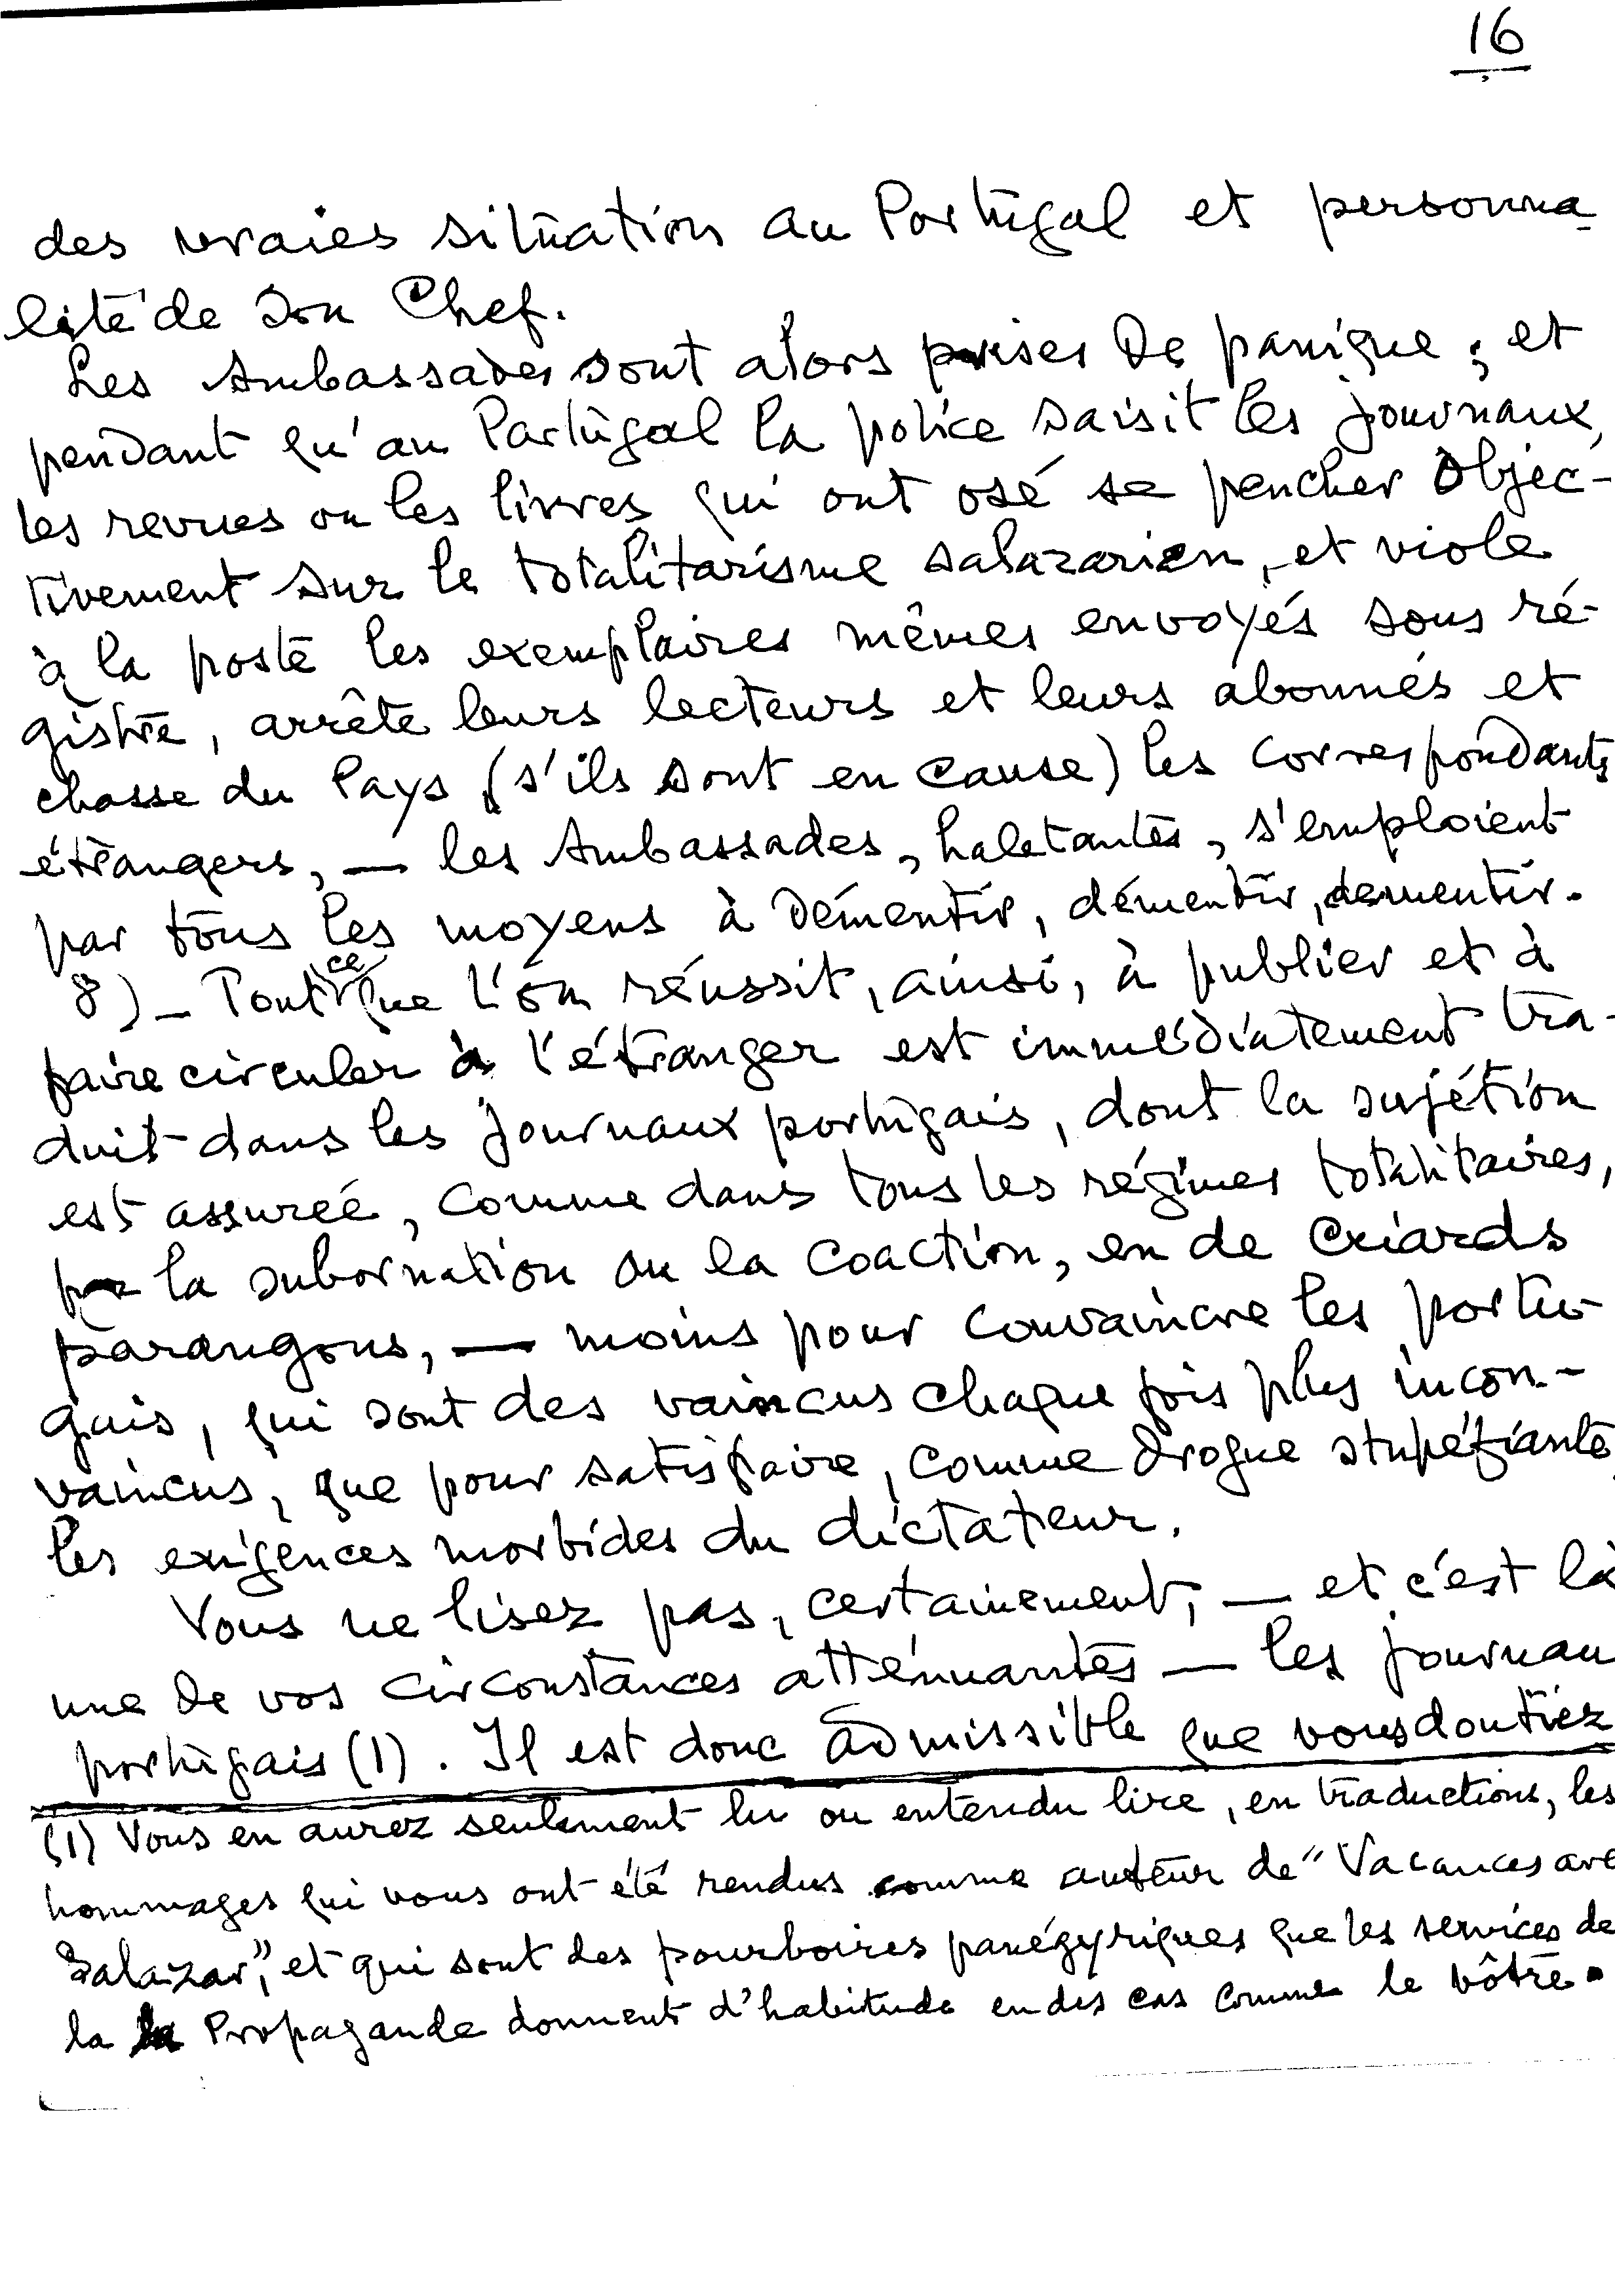 16
des vraies situation au Portugal et personna-
lité de son Chef.
Les Ambassades sont alors prises de panique ; et
pendant qu'au Portugal la police saisit les journaux,
les revues ou les livres qui ont osé se pencher objec-
tivement sur le totalitarisme salazarien, et viole
à la poste les exemplaires mêmes envoyés sous ré-
gistre, arrête leurs lecteurs et leurs abonnés et
chasse du Pays (s'ils sont en cause) les correspondants
étrangers, — les Ambassades, haletantes, s'emploient
par tous les moyens à démentir, démentir, dementir.
8) — Tout ce que l'on réussit, ainsi, à publier et à
faire circuler à l'étranger est immédiatement tra-
duit dans les journaux portugais, dont la sujétion
est assurée, comme dans tous les régimes totalitaires,
par la subornation ou la coaction, en de criards
parangons, — moins pour convaincre les portu-
gais, qui sont des vaincus chaque fois plus incon-
vaincus, que pour satisfaire, comme drogue stupéfiante,
les exigences morbides du dictateur.
Vous ne lisez pas, certainement, — et c'est là
une de vos circonstances atténuantes — les journau
portugais (1). Il est donc admissible que vous doutiez
(1) Vous en aurez seulement lu ou entendu lire, en traductions, les
hommages qui vous ont été rendus comme auteur de "Vacances ave
Salazar", et qui sont des pourboires panégyriques que les services de
la Propagande donnent d'habitude en des cas comme le vôtre.